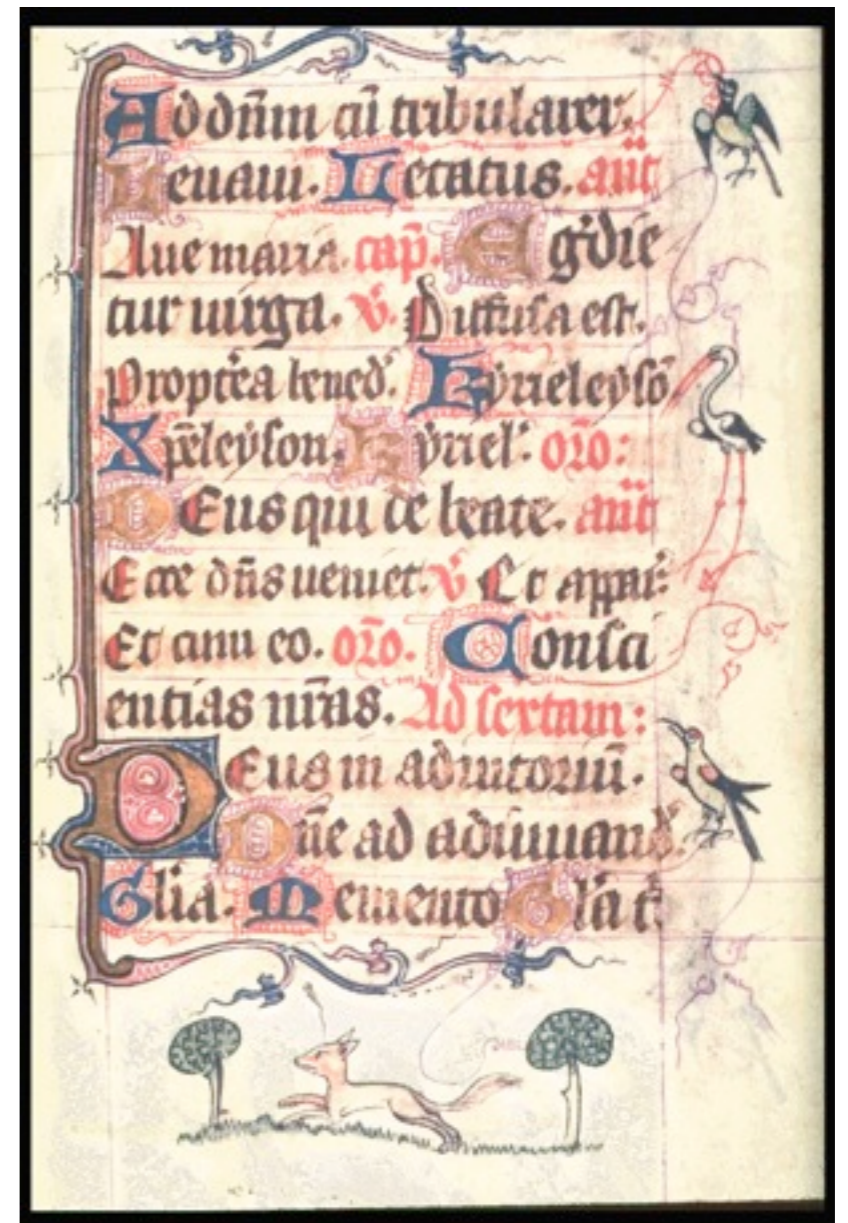 Ad dn̄m cū tribularer.
Leuaui. Letatus. ant̄
Aue maria. cap̄. Egrdie
tur uirga. v̄. Diffusa est.
Propt̄ea bened. Kyrieleyso̅
Xp̄eleyson. Kyriel. or̄o:
Deus qui de beate. ant̄
Ecce dn̄s ueniet. v̄ Et appar̄:
Et cum eo. or̄o. Consci
entias nr̄as. Ad sextam:
Deus in adiutoriū.
Dn̄e ad adiuuand.
Glīa. Memento Glīa t̄.